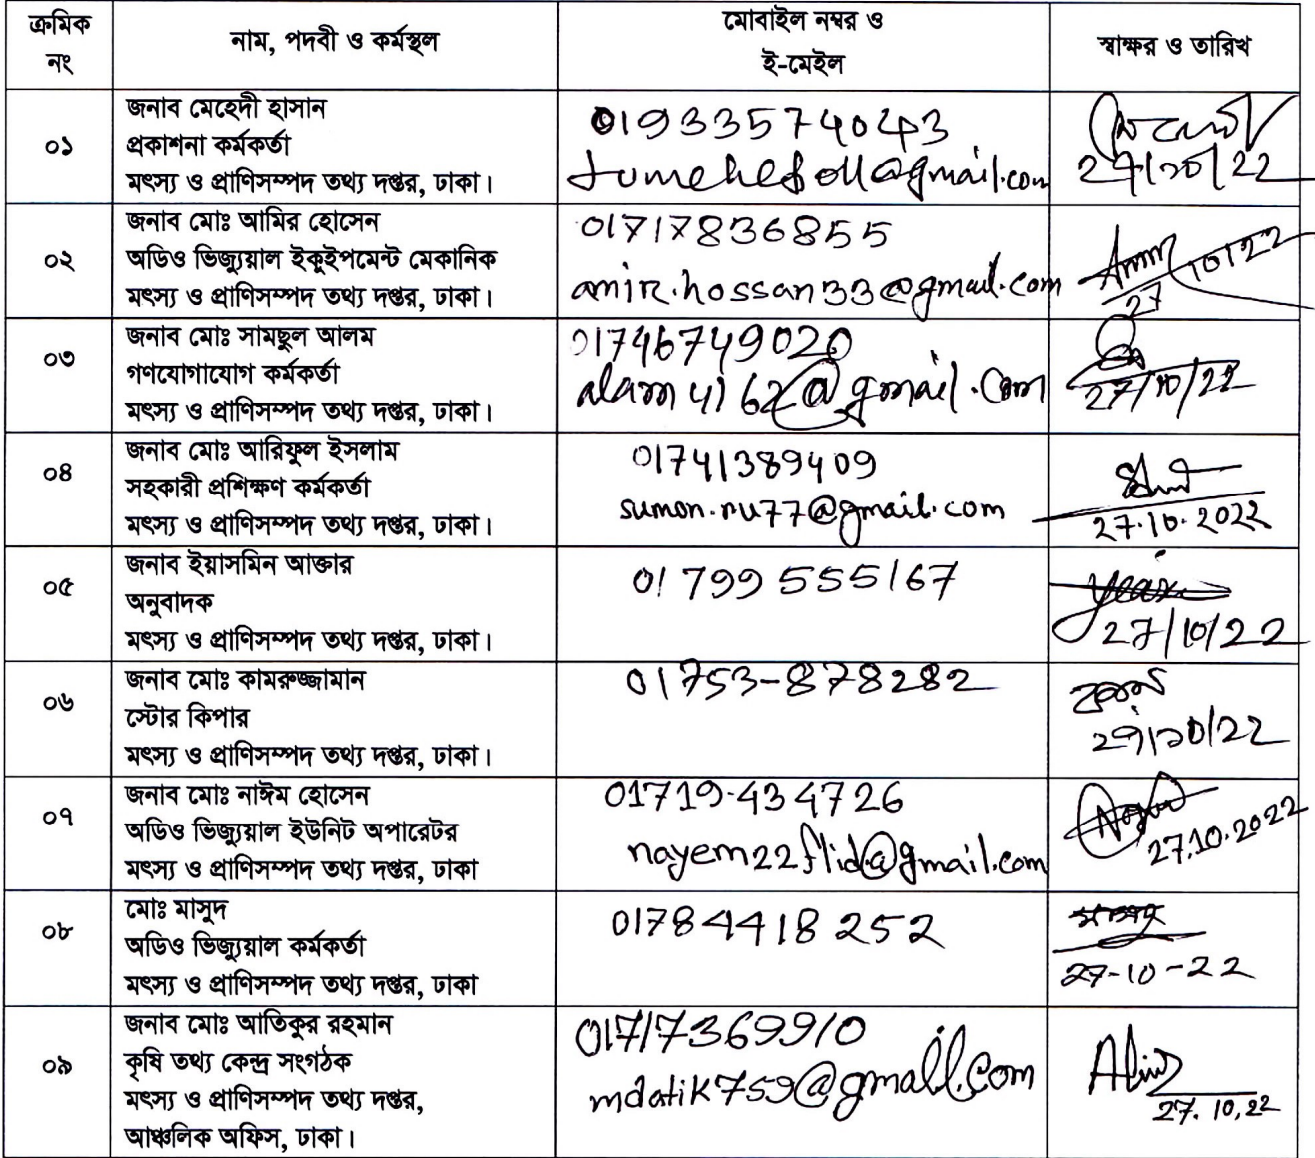 ক্রমিক
নং
নাম, পদবী ও কর্মস্থল
মোবাইল নম্বর ও
ই-মেইল
স্বাক্ষর ও তারিখ
০১
জনাব মেহেদী হাসান
প্রকাশনা কর্মকর্তা
মৎস্য ও প্রাণিসম্পদ তথ্য দপ্তর, ঢাকা।
01933574043
27/10/22
০২
জনাব মোঃ আমির হোসেন
অডিও ভিজ্যুয়াল ইকুইপমেন্ট মেকানিক
মৎস্য ও প্রাণিসম্পদ তথ্য দপ্তর, ঢাকা।
01717836855
amir.hossan33@gmail.com
27/10/22
০৩
জনাব মোঃ সামছুল আলম
গণযোগাযোগ কর্মকর্তা
মৎস্য ও প্রাণিসম্পদ তথ্য দপ্তর, ঢাকা।
01746749020
alam4162@gmail.com
27/10/22
০৪
জনাব মোঃ আরিফুল ইসলাম
সহকারী প্রশিক্ষণ কর্মকর্তা
মৎস্য ও প্রাণিসম্পদ তথ্য দপ্তর, ঢাকা।
01741389409
sumon.nu77@gmail.com
27.10.2022
০৫
জনাব ইয়াসমিন আক্তার
অনুবাদক
মৎস্য ও প্রাণিসম্পদ তথ্য দপ্তর, ঢাকা।
01799555167
27/10/22
০৬
জনাব মোঃ কামরুজ্জামান
স্টোর কিপার
মৎস্য ও প্রাণিসম্পদ তথ্য দপ্তর, ঢাকা।
01753-878282
২৭/১০/22
০৭
জনাব মোঃ নাঈম হোসেন
অডিও ভিজ্যুয়াল ইউনিট অপারেটর
মৎস্য ও প্রাণিসম্পদ তথ্য দপ্তর, ঢাকা
01719-434726
nayem22flid@gmail.com
27.10.2022
০৮
মোঃ মাসুদ
অডিও ভিজ্যুয়াল কর্মকর্তা
মৎস্য ও প্রাণিসম্পদ তথ্য দপ্তর, ঢাকা
01784418252
27-10-22
০৯
জনাব মোঃ আতিকুর রহমান
কৃষি তথ্য কেন্দ্র সংগঠক
মৎস্য ও প্রাণিসম্পদ তথ্য দপ্তর,
আঞ্চলিক অফিস, ঢাকা।
01717369910
mdatik759@gmail.com
27.10.22